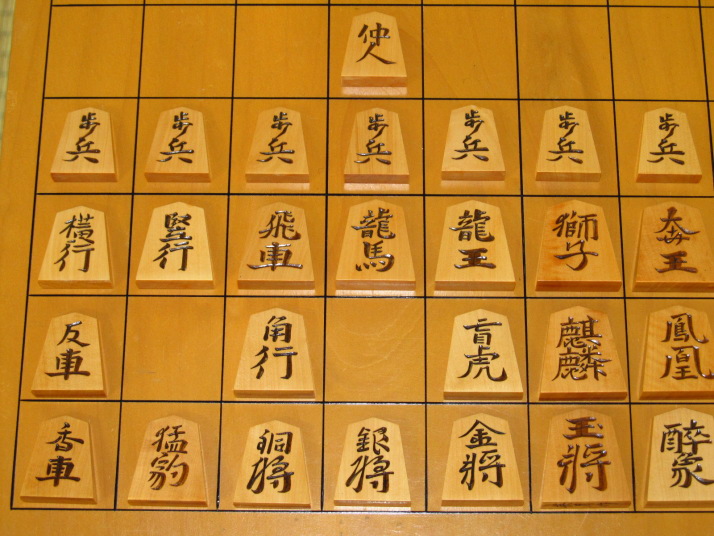 仲人
歩兵 歩兵 歩兵 歩兵 歩兵 歩兵 歩兵
横行 竪行 飛車 龍馬 龍王 獅子 奔王
反車 角行 盲虎 麒麟 鳳凰
香車 猛豹 銅将 銀将 金将 玉将 酔象